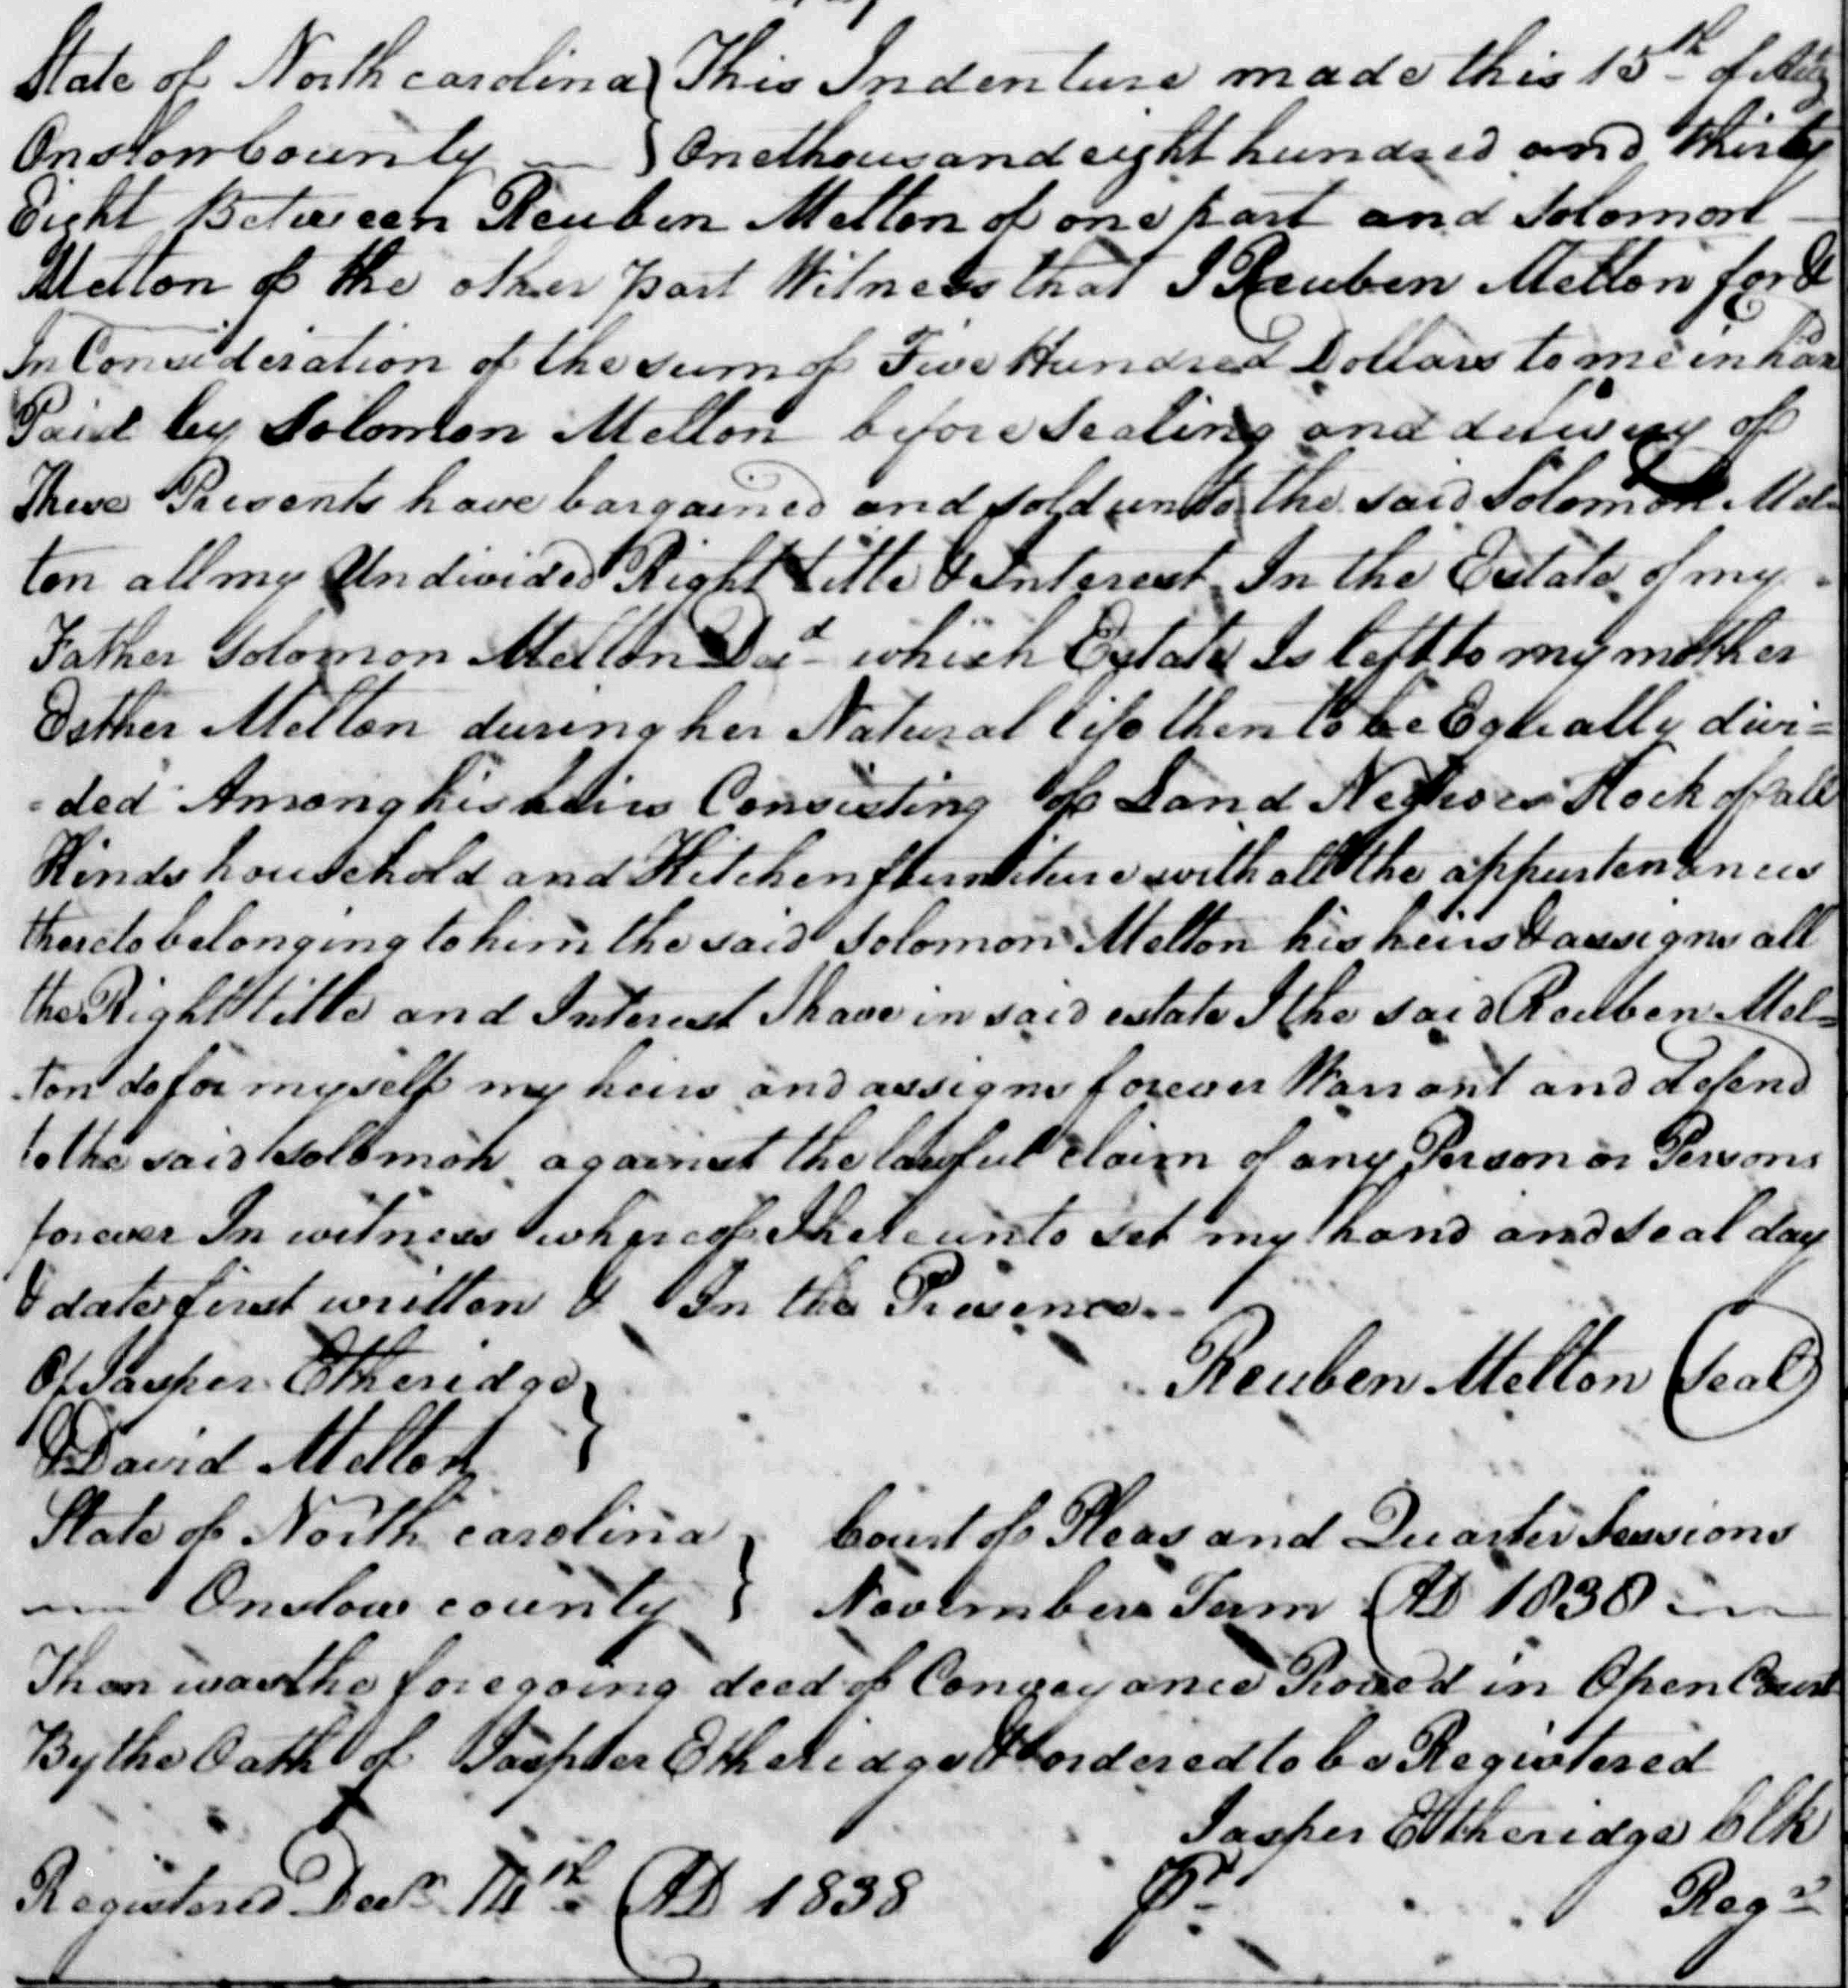 State of North carolina } This Indenture made this 15th of Aug
Onslow county — } One thousand eight hundred and thirty
Eight Between Reuben Melton of one part and Solomon —
Melton of the other part Witness that I Reuben Melton for &
In Consideration of the sum of Five Hundred Dollars to me in hand
Paid by Solomon Melton before sealing and delivery of
These Presents have bargained and sold unto the said Solomon Mel-
ton all my Undivided Right title & Interest In the Estate of my
Father Solomon Melton Decd which Estate Is left to my mother
Esther Melton during her Natural life then to be Equally divi=
=ded Among his heirs Consisting of Land Negroes Stock of all
Kinds household and Kitchen furniture with all the appurtenances
thereto belonging to him the said Solomon Melton his heirs & assigns all
the Right title and Interest I have in said estate I the said Reuben Mel=
ton do for myself my heirs and assigns forever Warrant and defend
to the said Solomon against the lawful claim of any Person or Persons
forever In witness whereof I hereunto set my hand and seal day
& date first written & In the Presence
Of Jasper Etheridge } Reuben Melton (Seal)
& David Melton }
State of North carolina } Court of Pleas and Quarter Sessions
— Onslow county } November Term AD 1838 —
Then was the foregoing deed of Conveyance Proved in Open Court
By the Oath of Jasper Etheridge & ordered to be Registered
Jasper Etheridge Clk
Registered Decr 14th AD 1838 Pr Regr